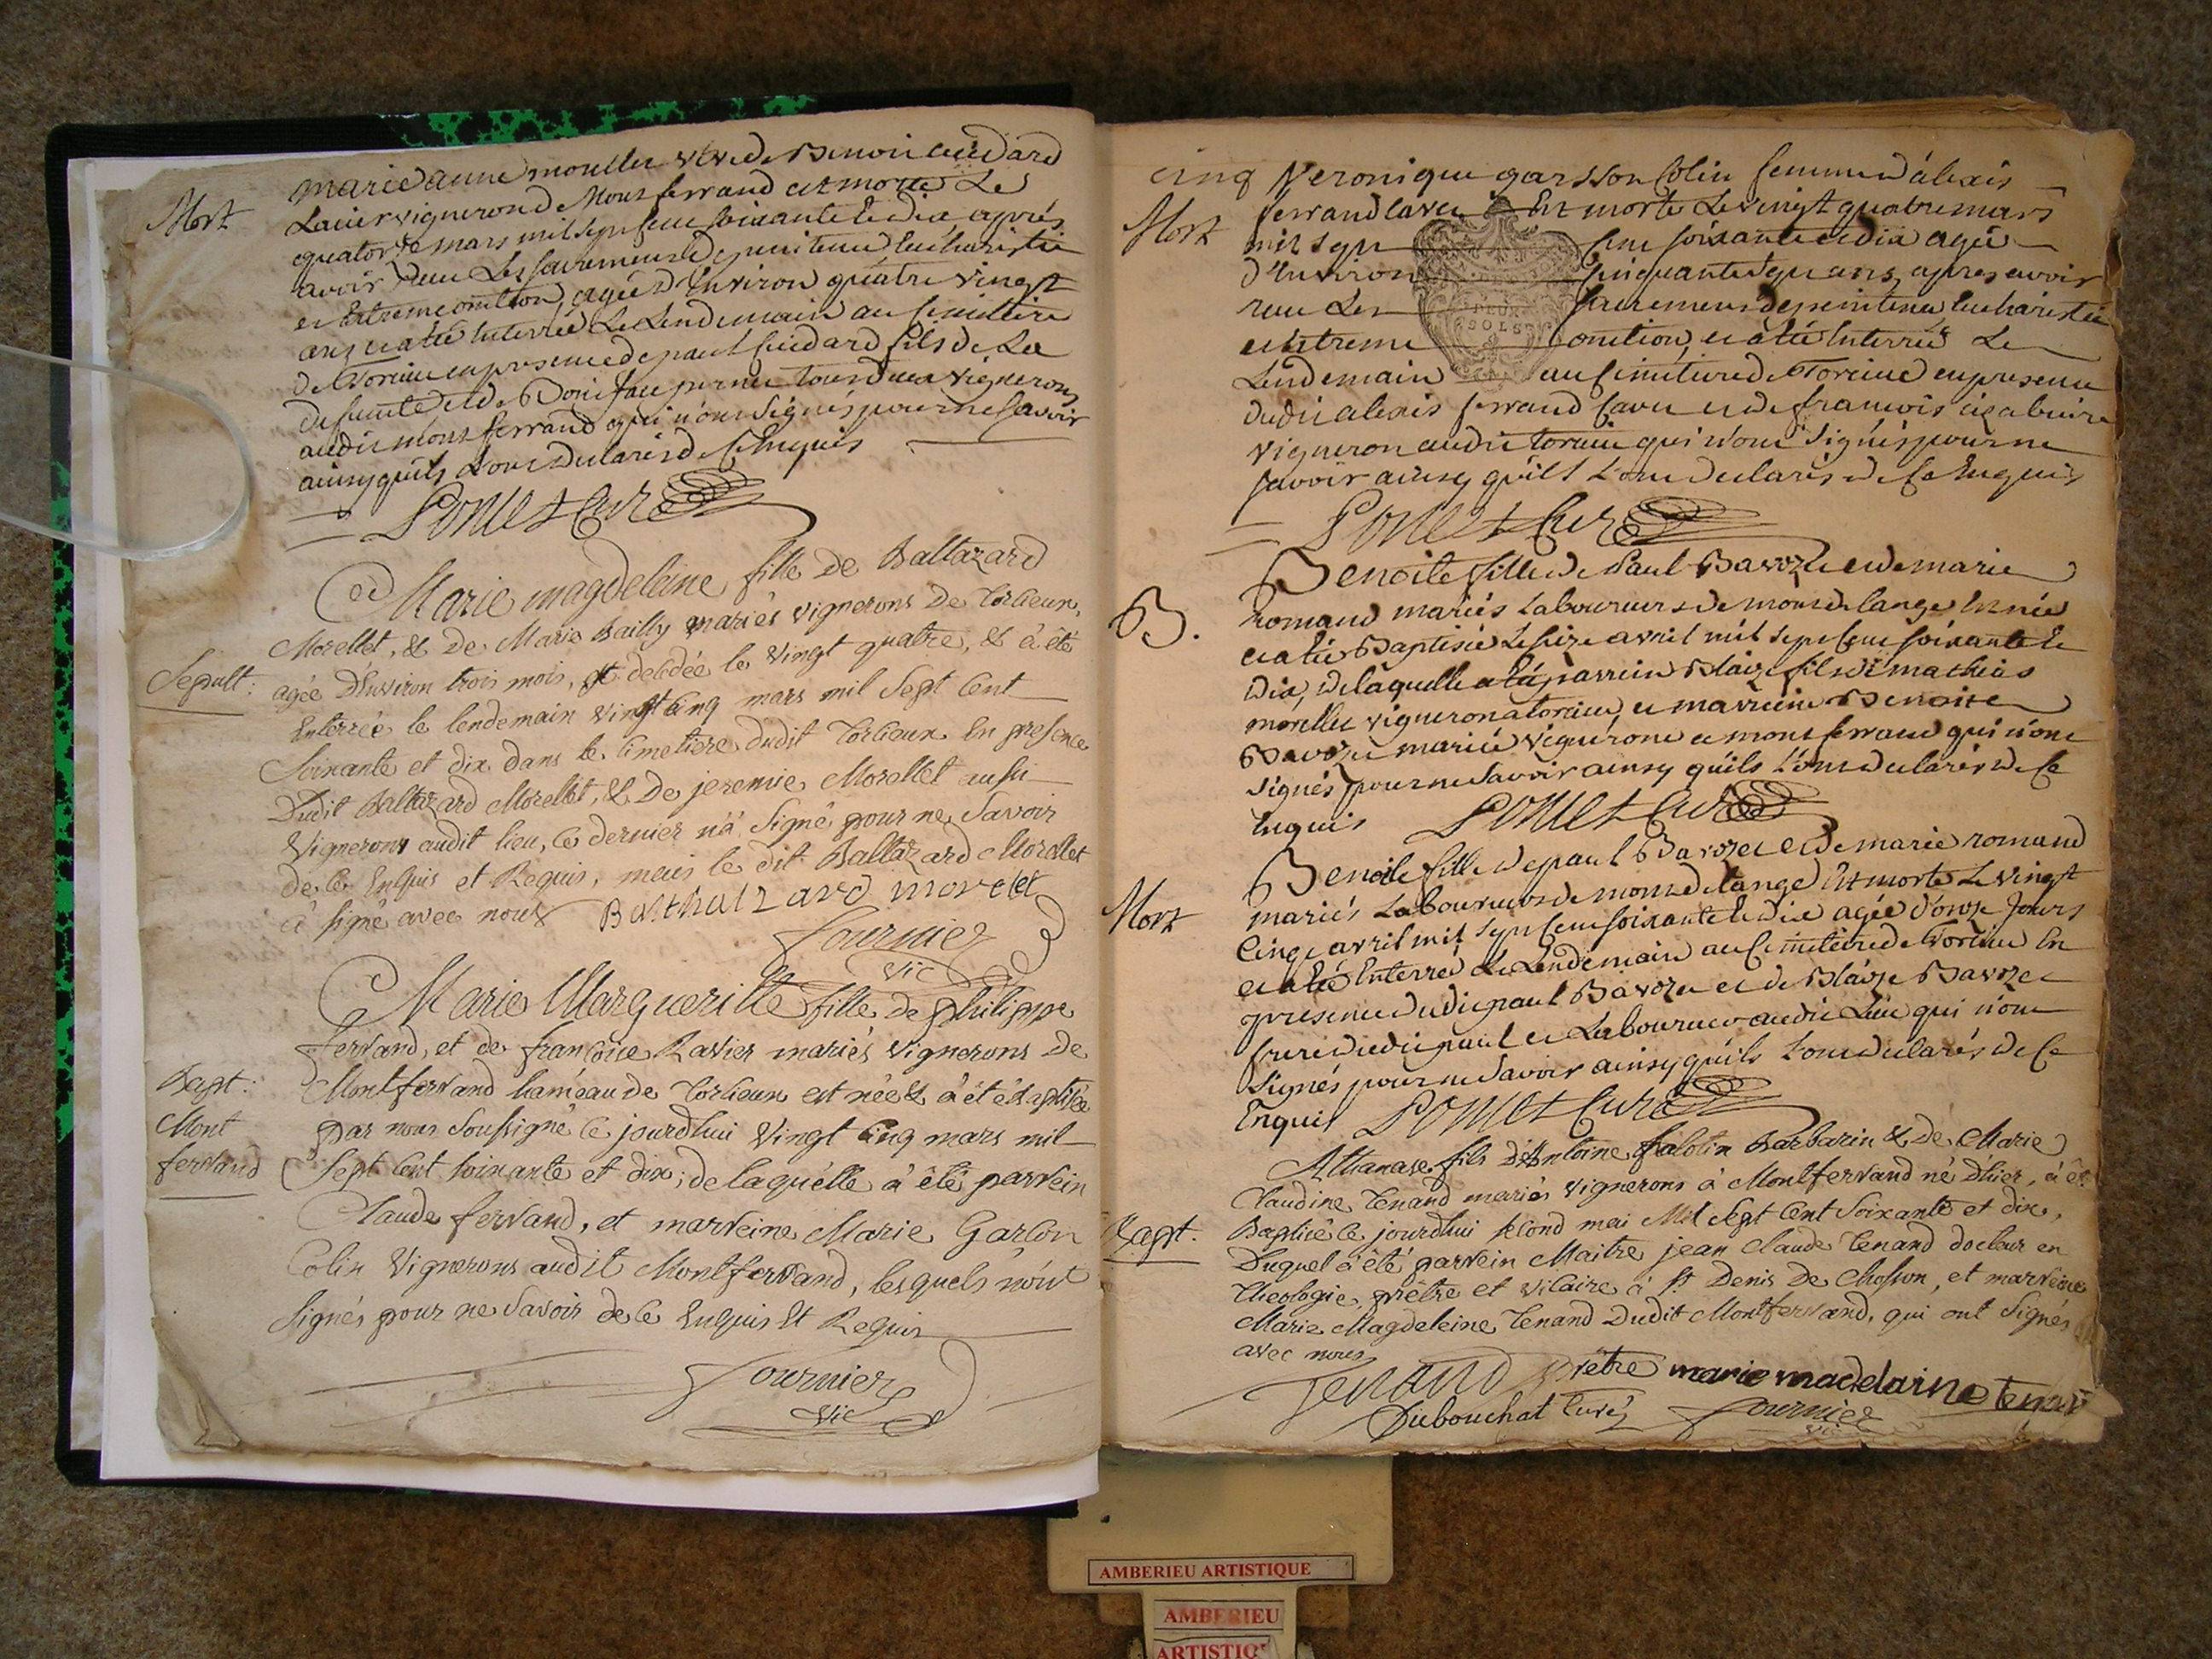 Mort
marie anne morellet veve de Benoit cuidard
Lavier vigneron de Montferrand est morte Le
quatorze mars mil sept cent soixante et dix aprés
avoir reçu Les sacremens de penitence Eucharistie
et Extreme onction, agée d'Environ quatre vingt
ans et a été Enterrée Le Lendemain au cimitière
de Torcieu en presence de paul cuidard fils de La
defunte et de Boniface pernet tous deux vignerons
audit montferrand qui n'ont signés pour ne savoir
ainsy quils L'ont declarés de ce Enquis
Ponset Curé
Sepult:
Marie magdeleine fille de Baltazard
Morellet, & de Marie Bailly mariés vignerons de Torcieux,
agée d'Environ trois mois, est decedée le vingt quatre, & à été
Enterrée le lendemain vingt cinq mars mil Sept Cent
Soixante et dix dans le Cimetiere dudit Torcieux En presence
Dudit Baltazard Morellet, & de jeremie Morellet aussi
Vignerons audit lieu, ce dernier n'à signé pour ne Savoir
de ce Enquis et Requis, mais le dit Baltazard Morellet
à signé avec nous Balthalzard morelet
fournier
vic
Bapt:
Mont
ferrand
Marie Marguerille fille de philippe
ferrand, et de françoise Ravier mariés vignerons de
Montferrand hameau de Torcieux est née & à été Baptisée
par nous Soussigné ce jourdhui vingt Cinq mars mil
Sept Cent soixante et dix; de laquélle à été parrein
Claude ferrand, et marreine Marie Garçon
Colin Vignerons audit Montferrand, lesquels n'ont
Signés pour ne Savoir de ce Enquis Et Requis
fournier
vic
cinq
Mort
Veronique garsson Colin femme d'alexis
ferrand cavet Est morte Le vingt quatre mars
mil sept cent soixante et dix agée
d'Environ cinquante sept ans, apres avoir
reçu Les sacremens de penitence Eucharistie
et Extreme onction, et a été Enterrée Le
Lendemain au cimitiere de Torcieu en presence
DEUX
SOLS
dudit alexis ferrand cavet et de francois
vigneron audit torcieu qui n'ont signés pour ne
savoir ainsy quils L'ont declarés de ce Enquis
Ponset Curé
B.
Benoite fille de Paul Bavozet et de marie
romand mariés Laboureurs de mont de lange Est née
et a été Baptisée Le seize avril mil sept cent soixante et
dix, de laquelle a été parrein Blaize fils de mathias
morellet vigneron a torcieu, et marreine Benoite
Bavozet mariée vigneronne a montferrand qui n'ont
signés pour ne savoir ainsy quils L'ont declarés de ce
Enquis Ponset Curé
Mort
Benoite fille de paul Bavozet et de marie romand
mariés Laboureurs de mont de lange Est morte Le vingt
Cinq avril mil sept cent soixante et dix agée d'onze Jours
et a été Enterré Le Lendemain au cimitière de Torcieu En
presence dudit paul Bavozet et de Blaize Bavozet
frere dudit paul et Laboureur audit Lieu qui n'ont
signés pour ne savoir ainsy quils L'ont declarés de ce
Enquis Ponset Curé
Bapt:
Athanase fils d'Antoine falcoln Barbarin & de Marie
Claudine Tenand mariés vignerons à Montferrand né D'hier, à été
Baptisé ce jourdhui second mai Mil Sept Cent Soixante et dix,
Duquel à été parrein Maitre jean Claude Tenand docteur en
Theologie, prêtre et vicaire à St Denis De Chosson, et marreine
Marie Magdeleine Tenand Dudit Montferrand, qui ont Signés
avec nous
Tenand prêtre marie madelaine tenan
Dubouchat Curé fournier
vic
AMBERIEU ARTISTIQUE
AMBERIEU
ARTISTIQ